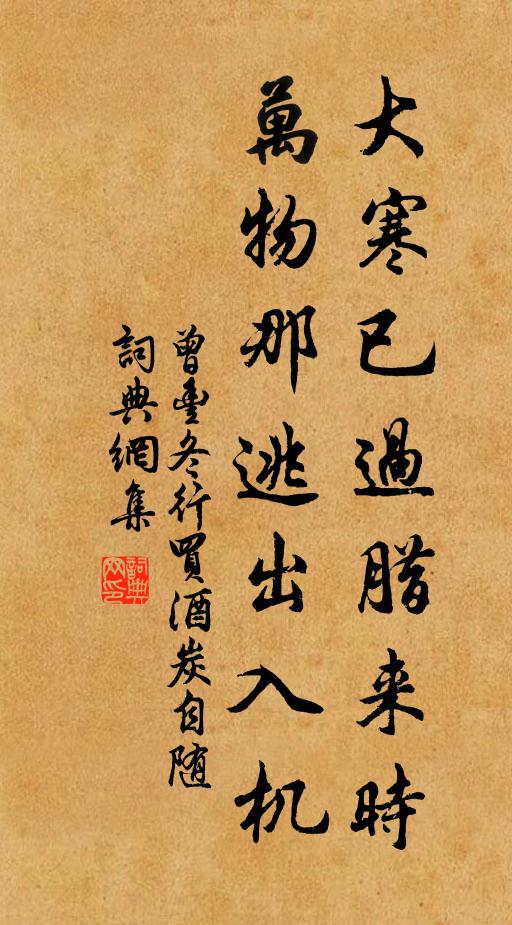 大寒已過腊来時
萬物那逃出入机
曾豊冬行買酒炭自随
詞典網集
詞典网印